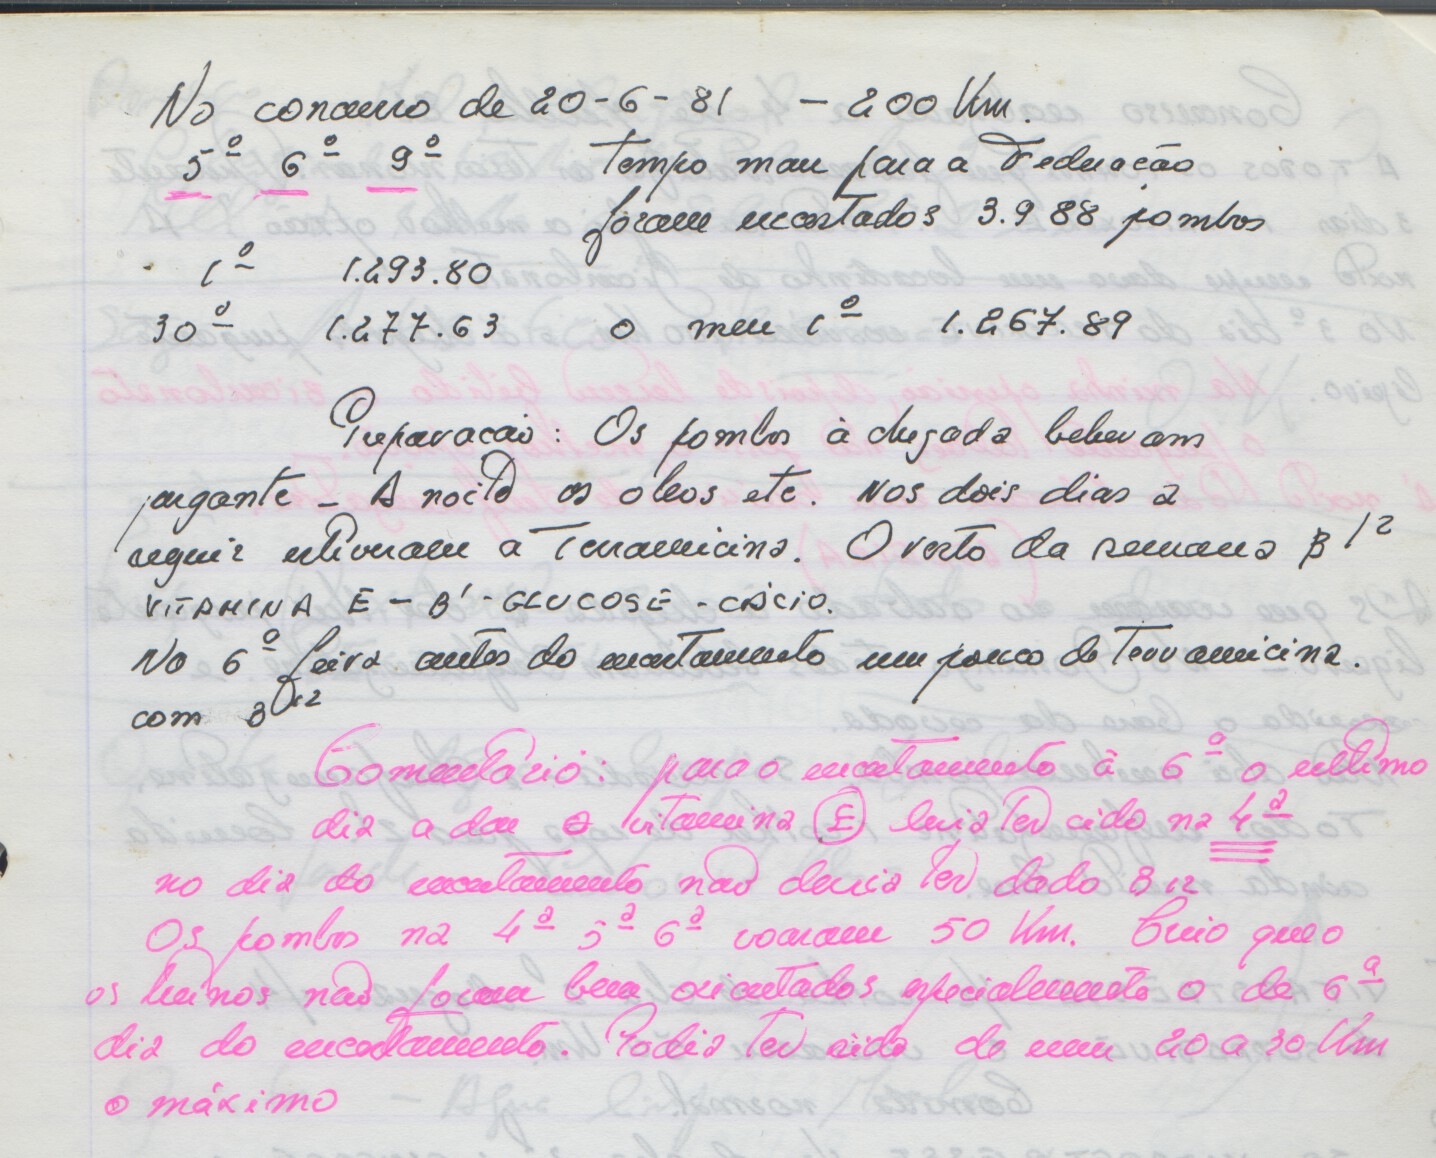 No concurso de 20-6-81 - 200 Km.
5º 6º 9º Tempo mau para a Federação
foram encestados 3.988 pombos
1º 1.293.80
30º 1.277.63 o meu 1º 1.267.89
Preparacão: Os pombos à chegada beberam
purgante - A noite os oleos etc. Nos dois dias a
seguir estiveram a Terramicina. O resto da semana B12
VITAMINA E - B' - GLUCOSE - CÁLCIO.
No 6º feira antes do encestamento um pouco de Terramicina.
com B12
Comentário: para o encestamento à 6ª o ultimo
dia a dar a vitamina E devia ter cido na 4ª
no dia do encestamento não devia ter dado B12
Os pombos na 4ª 5ª 6ª voaram 50 Km. Creio que o
os treinos não foram bem orientados especialmente o de 6ª
dia do encestamento. Podia ter sido de uns 20 a 30 Km
o máximo